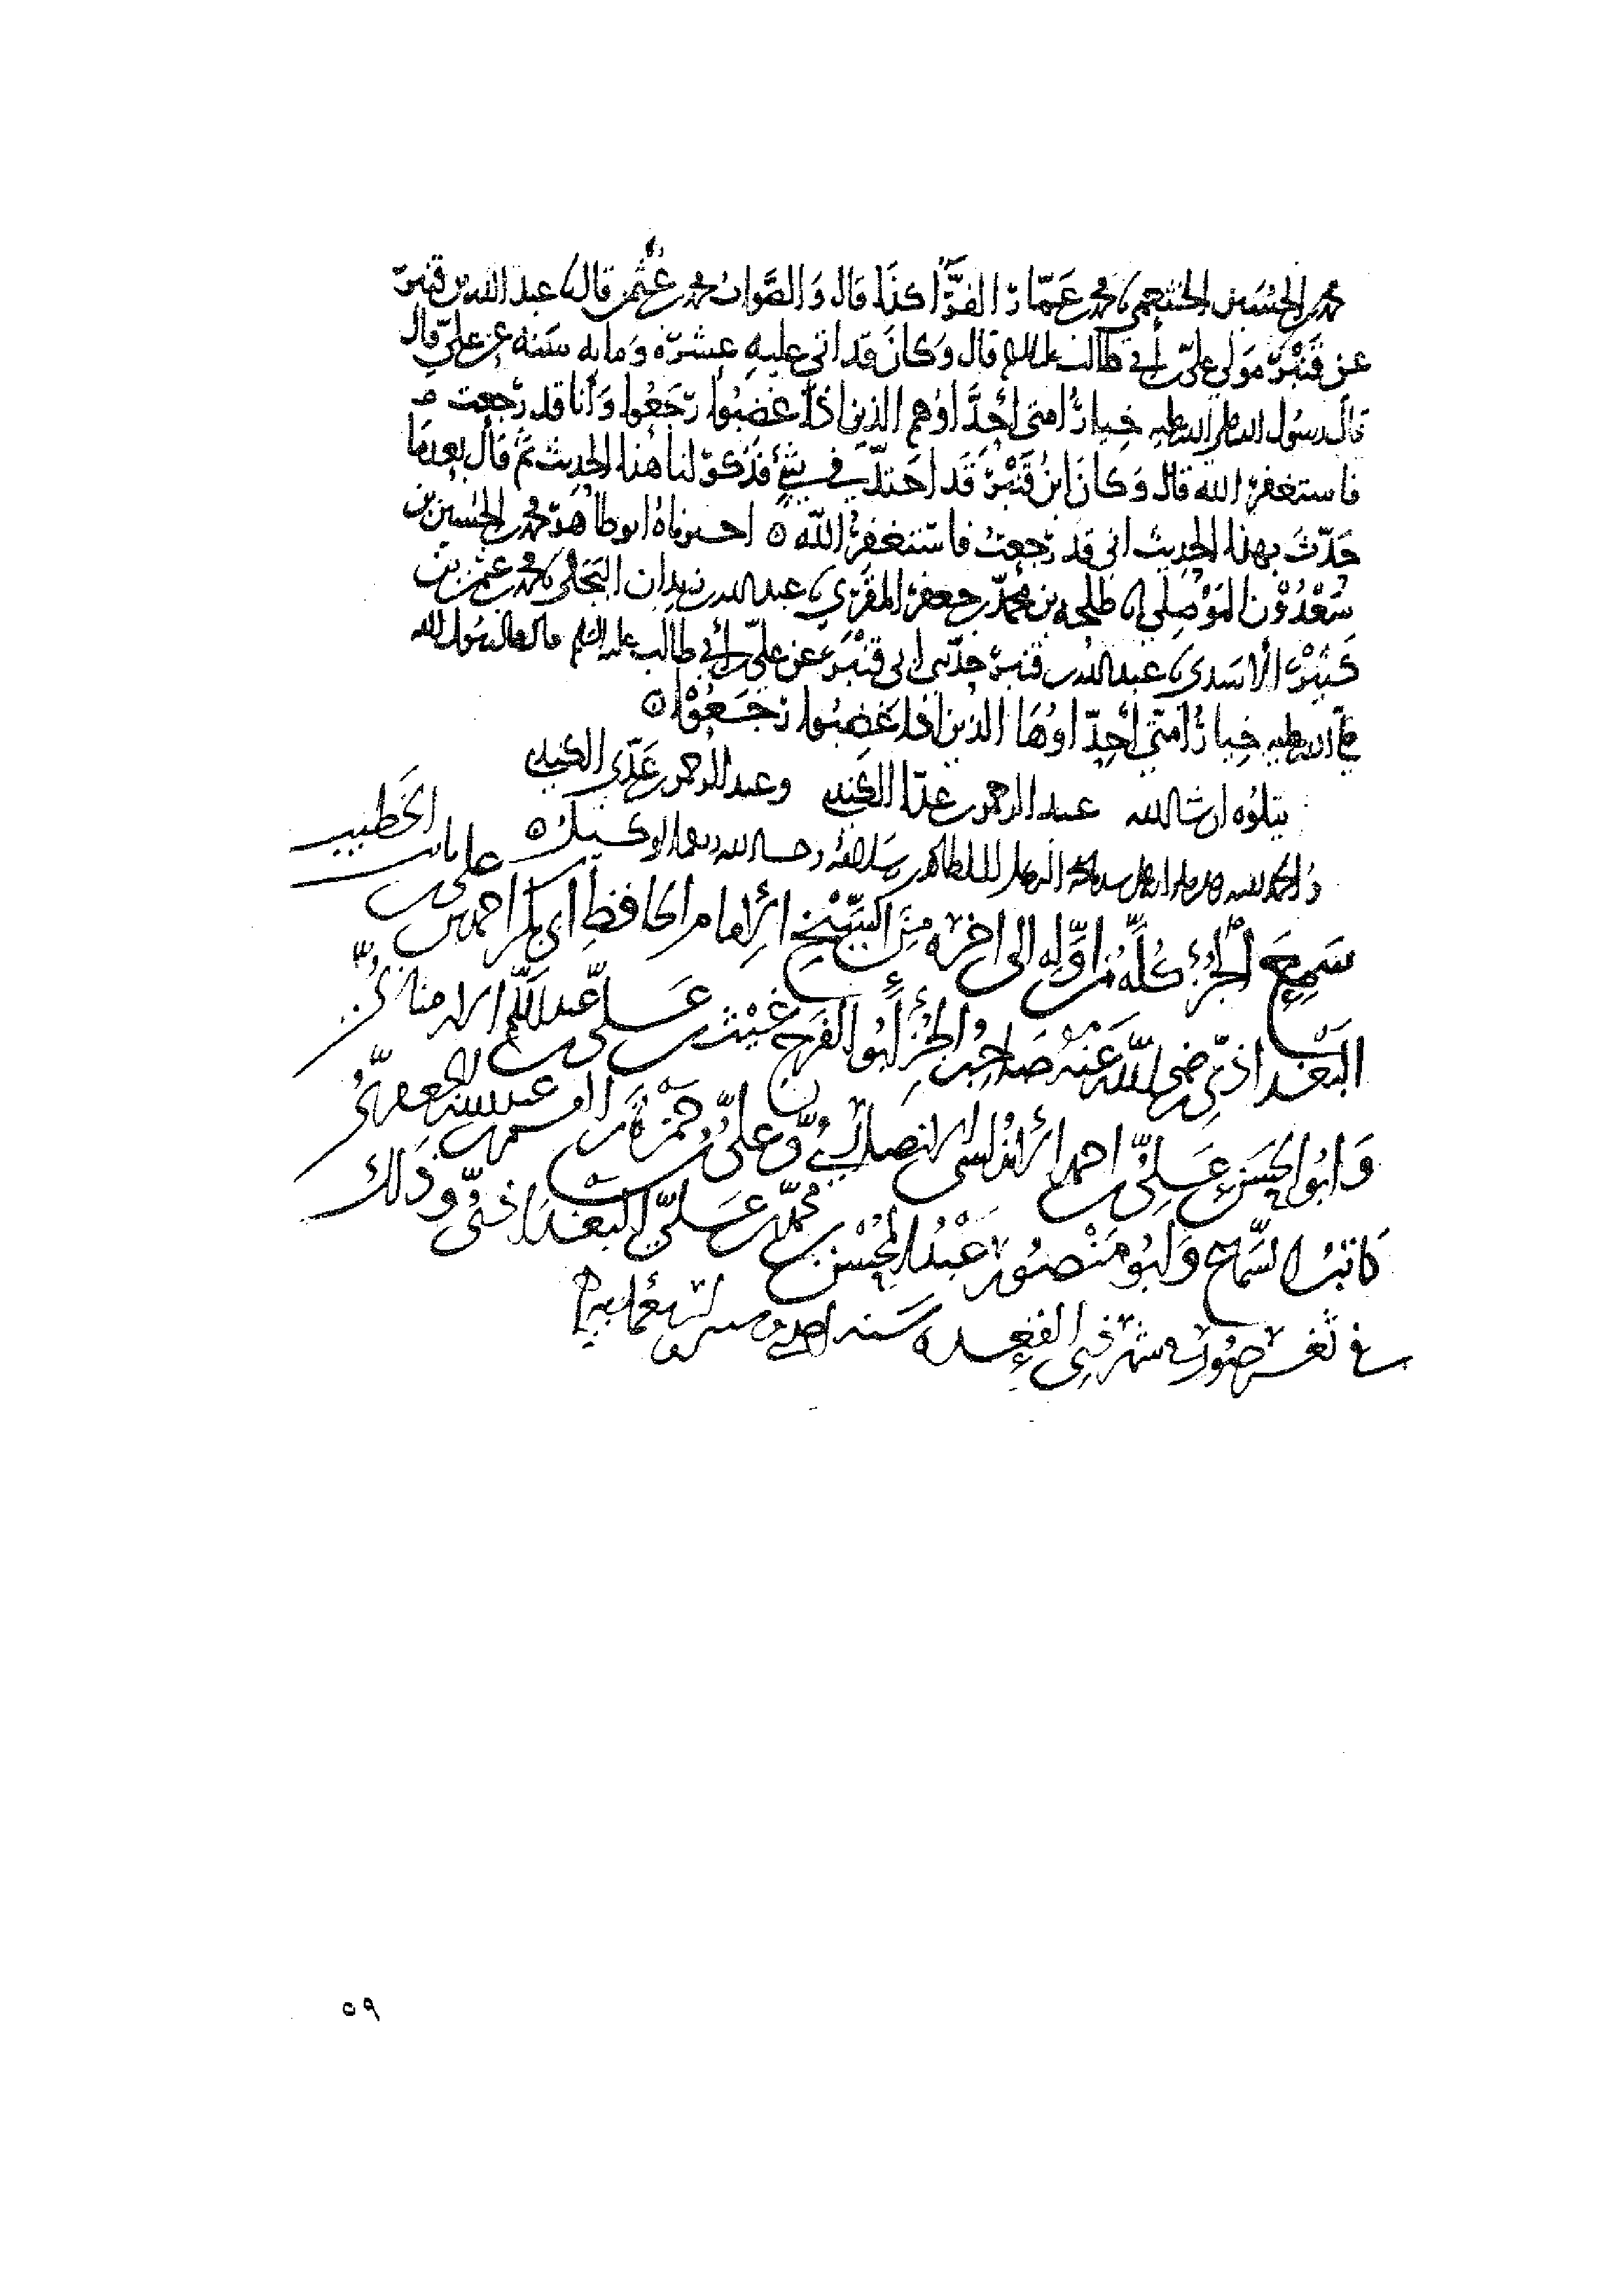 محمد بن الحسين الخثعمي نا محمد بن عمار الفرا كذا قال والصواب محمد بن عثمن قال نا عبد الله بن قنبر
عن قنبر مولى علي بن أبي طالب قال وكان قد اتى عليه عشرة ومايه سنه عن علي قال
قال رسول الله صلى الله عليه خيار امتي أحداوهم الذين اذا غضبوا رجعوا وأنا قد رجعت
فاستغفر الله قال وكان ابن قنبر قد احتد في شيء فذكر لنا هذا الحديث ثم قال بعد ما
حدث بهذا الحديث اني قد رجعت فاستغفر الله ه اخبرناه ابو طاهر محمد بن الحسين بن
سعدون الموصلي انا طلحه بن محمد بن جعفر المقري نا عبد الله بن زيدان البجلي نا محمد بن عثمن بن
الاسدي نا عبد الله بن قنبر حدثني ابي قنبر عن علي بن أبي طالب عليه السلم قال قال رسول الله
صلى الله عليه خيار أمتي أحداوها الذين اذا غضبوا رجعوا ه
يتلوه ان شا الله عبد الرحمن بن الكندي وعبد الرحمن بن عدي الكندي
والحمد لله وحده وحسبنا الله ونعم الوكيل ه
سمع الجزء كله من اوله الى اخره من الشيخ الإمام الحافظ ابي بكر احمد بن علي بن ثابت الخطيب
البغداذي رضي الله عنه صاحب الجزء ابو الفرج غيث بن علي بن عبد السلام الارمنازي
وابو الحسن علي بن احمد الأندلسي الانصاري وعلي بن حمزة بن الجعفري
كاتب السماع وابو منصور عبد المحسن بن محمد بن علي البغداذي وذلك
في ثغر صور في شهر ذي القعده سنه احدى وستين واربعمايه
٥٩